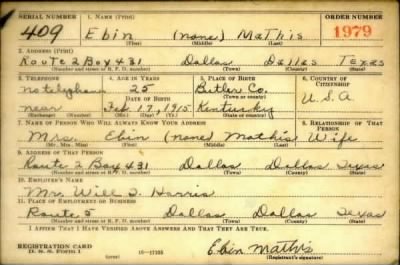 SERIAL NUMBER 1. NAME (Print) ORDER NUMBER
409 Ebin (none) Mathis 1979
(First) (Middle) (Last)
2. ADDRESS (Print)
Route 2 Box 431 Dallas Dallas Texas
(Number and street or R. F. D. number) (Town) (County) (State)
3. TELEPHONE 4. AGE IN YEARS 5. PLACE OF BIRTH 6. COUNTRY OF CITIZENSHIP
no telephone 25 Butler Co.
DATE OF BIRTH (Town or county)
near Feb 17, 1915 Kentucky U.S.A
(Exchange) (Number) (Mo.) (Day) (Yr.) (State or country)
7. NAME OF PERSON WHO WILL ALWAYS KNOW YOUR ADDRESS 8. RELATIONSHIP OF THAT PERSON
Mrs. Ebin (none) Mathis Wife
(Mr., Mrs., Miss) (First) (Middle) (Last)
9. ADDRESS OF THAT PERSON
Route 2 Box 431 Dallas Dallas Texas
(Number and street or R. F. D. number) (Town) (County) (State)
10. EMPLOYER'S NAME
Mr. Will S. Harris
11. PLACE OF EMPLOYMENT OR BUSINESS
Route 5 Dallas Dallas Texas
(Number and street or R. F. D. number) (Town) (County) (State)
I AFFIRM THAT I HAVE VERIFIED ABOVE ANSWERS AND THAT THEY ARE TRUE.
REGISTRATION CARD Ebin Mathis
D. S. S. FORM 1 16-17105 (Registrant's signature)